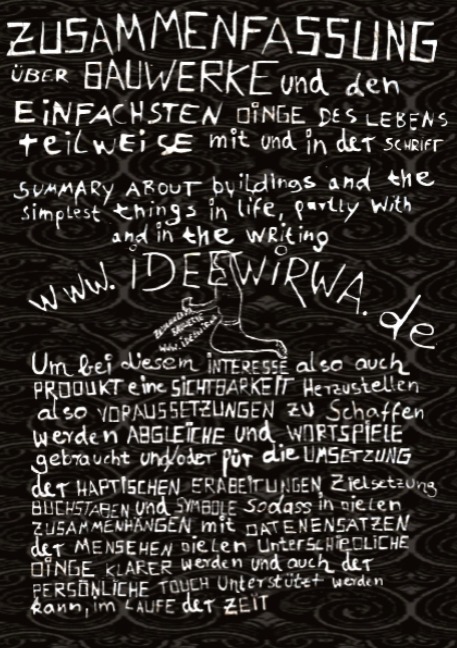 ZUSAMMENFASSUNG
ÜBER BAUWERKE und den
EiNFACHSTEN DINGE DES LEBENS
teilweise mit und in der SCHRIFT
SUMMARY ABOUT buildings and the
simplest things in life, partly with
and in the writing
www. iDEEWiRWA. de
www.ideewirwa
Um bei diesem INTERESSE also auch
PRODUKT eine SICHTBARKEIT Herzustellen
also VORAUSSETZUNGEN zu Schaffen
werden ABGLEICHE und WORTSPIELE
gebraucht und/oder für die UMSETZUNG
der HAPTISCHEN ERABEITUNGEN Zielsetzung
BUCHSTABEN und SYMBOLE Sodass in vielen
ZUSAMMENHÄNGEN mit DATENENSATZEN
der MENSEHEN vielen UnterSCHIEDLICHE
DINGE KLARER werden und auch der
PERSÖNLICHE TOUCH Unterstützt werden
kann, im LAUFE der ZEIT